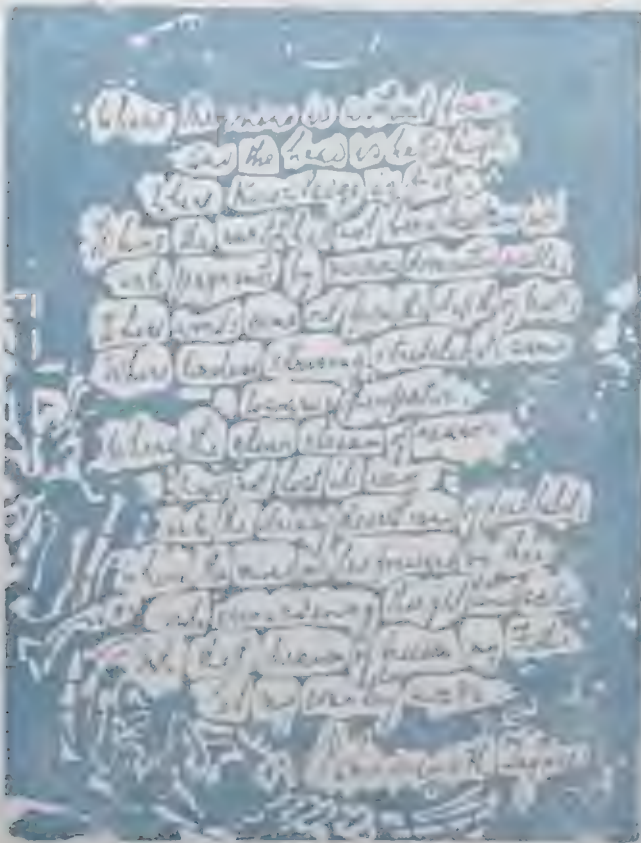 Where the mind is without fear
and the head is held high
Where knowledge is free
Where the world has not been broken up
into fragments by narrow domestic walls
Where words come out from the depth of truth
Where tireless striving stretches its arms
towards perfection
Where the clear stream of reason
has not lost its way
into the dreary desert sand of dead habit
Where the mind is led forward by thee
into ever-widening thought and action
into that heaven of freedom, my Father,
let my country awake
Rabindranath Tagore